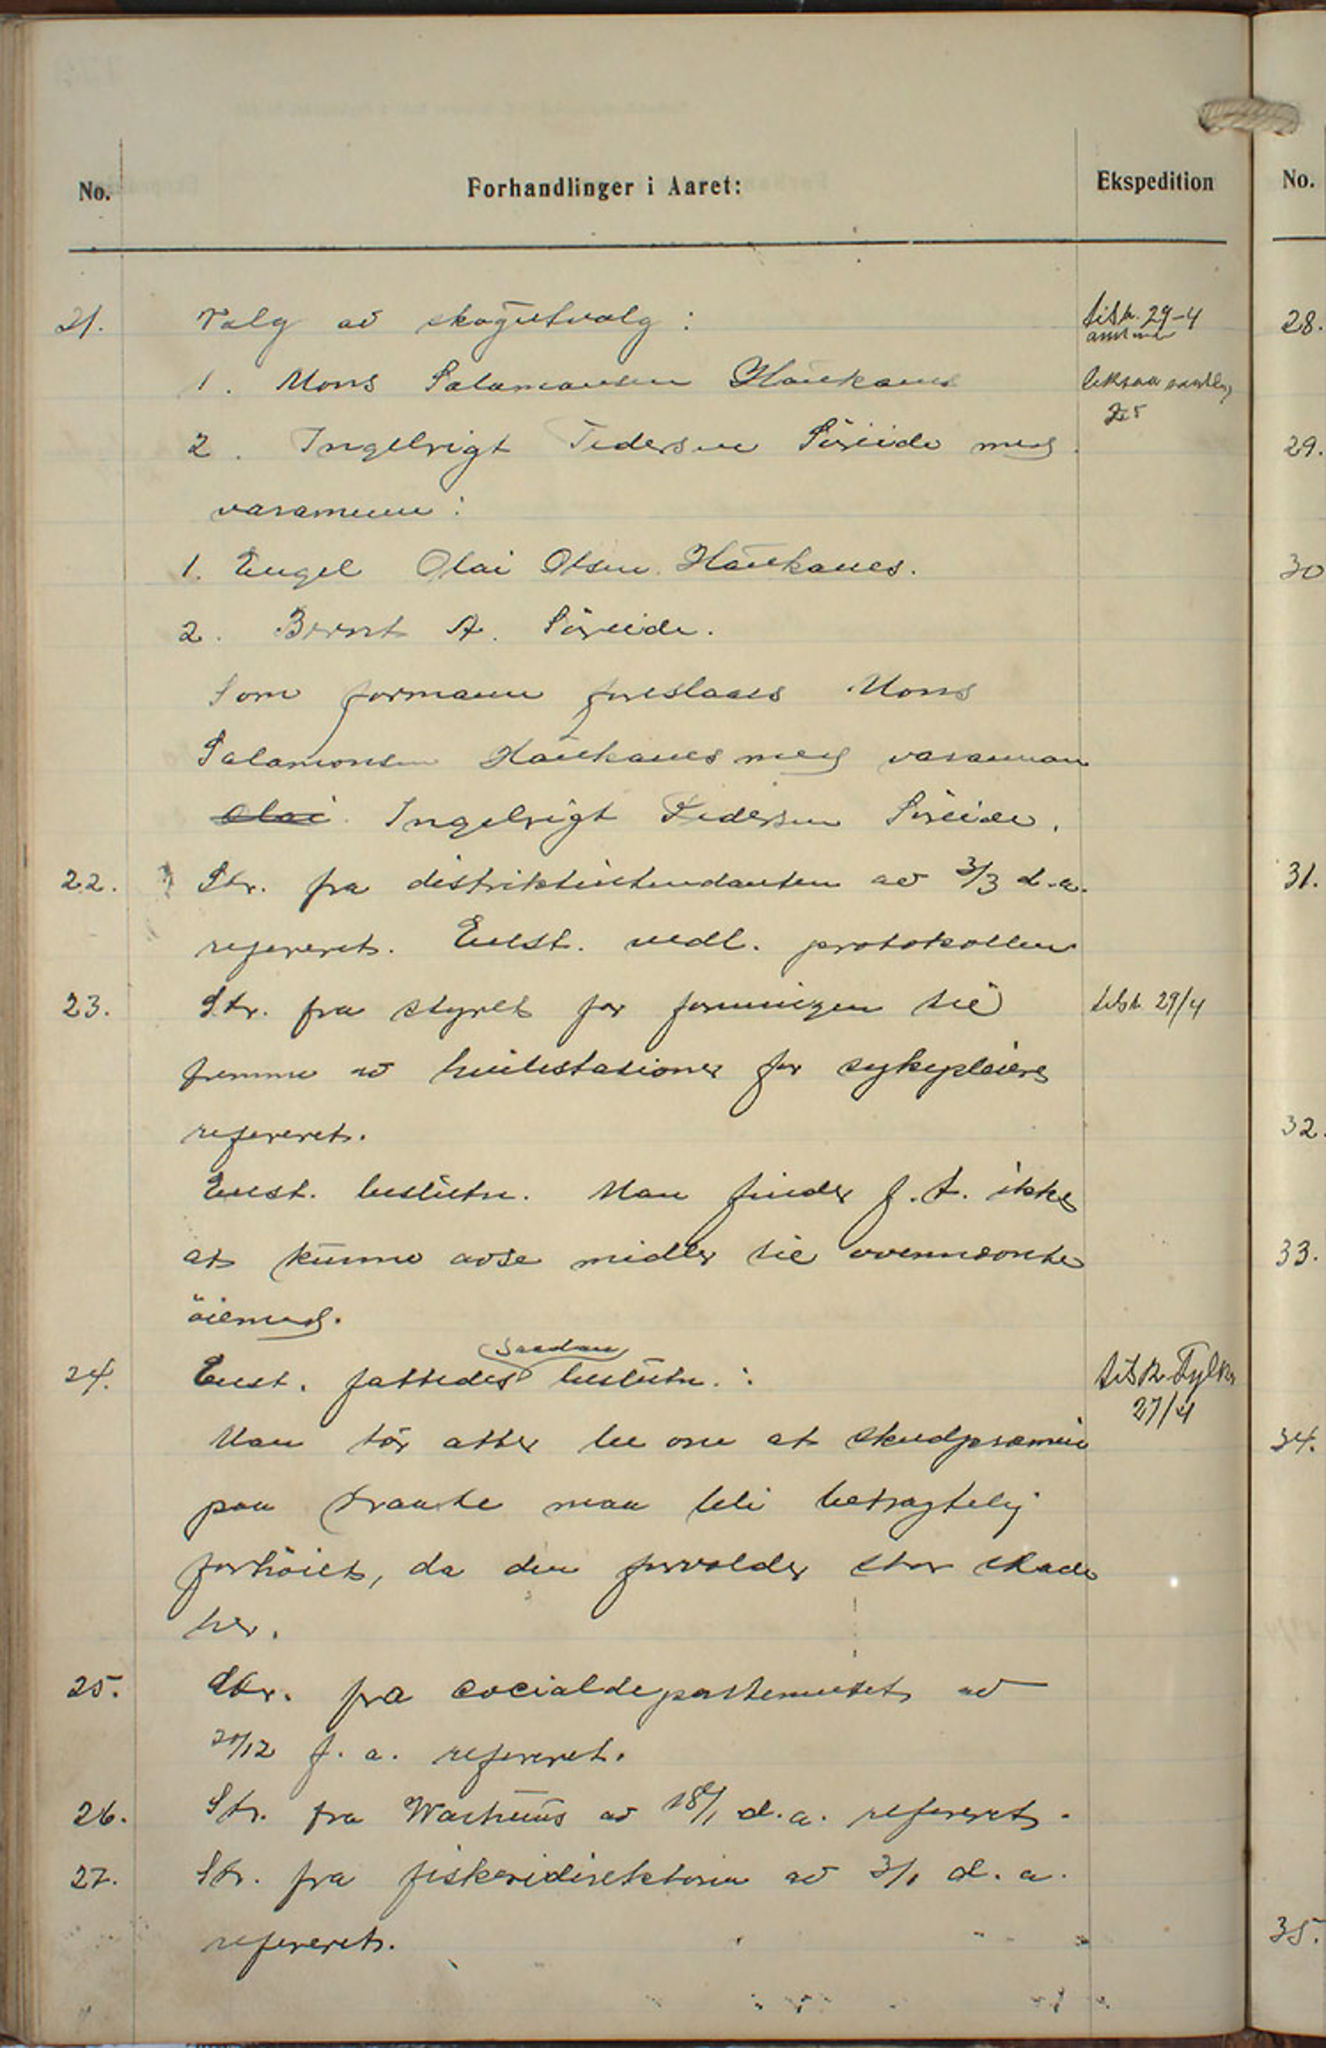 No. Forhandlinger i Aaret: Ekspedition No.
21. Valg av skogutvalg: tilsk. 29-4 28.
1. Mons Salamonsen Haukanes
2. Ingebrigt Pedersen Söreide med 29.
varamenn:
1. Engel Olai Olsen Haukanes. 30
2. Bernt A. Söreide.
Som formann foreslaaes Mons
Salamonsen Haukanes med varamann
Olai Ingebrigt Pedersen Söreide.
22. Skr. fra distriktsintendanten av 3/3 d.a. 31.
refereret. Enst. vedl. protokollen
23. Skr. fra styret for foreningen til tilsk. 29/4
fremme av hvilestationer for sykepleiere
refereret. 32.
Enst. beslutn. Man finder f.t. ikke
at kunne avse midler til ovennævnte 33.
öiemed.
24. Enst. fattedes saadan beslutn.: tilsk. Fylket
27/4
Man tör atter be om at skudpræmie 34.
paa kraake maa bli betragtelig
forhöiet, da den forvolder stor skade
her.
25. Skr. fra socialdepartementet av
20/12 f.a. refereret.
26. Skr. fra Warhuus av 18/1 d.a. refereret.
27. Skr. fra fiskeridirektören av 3/1 d.a.
refereret. 35.